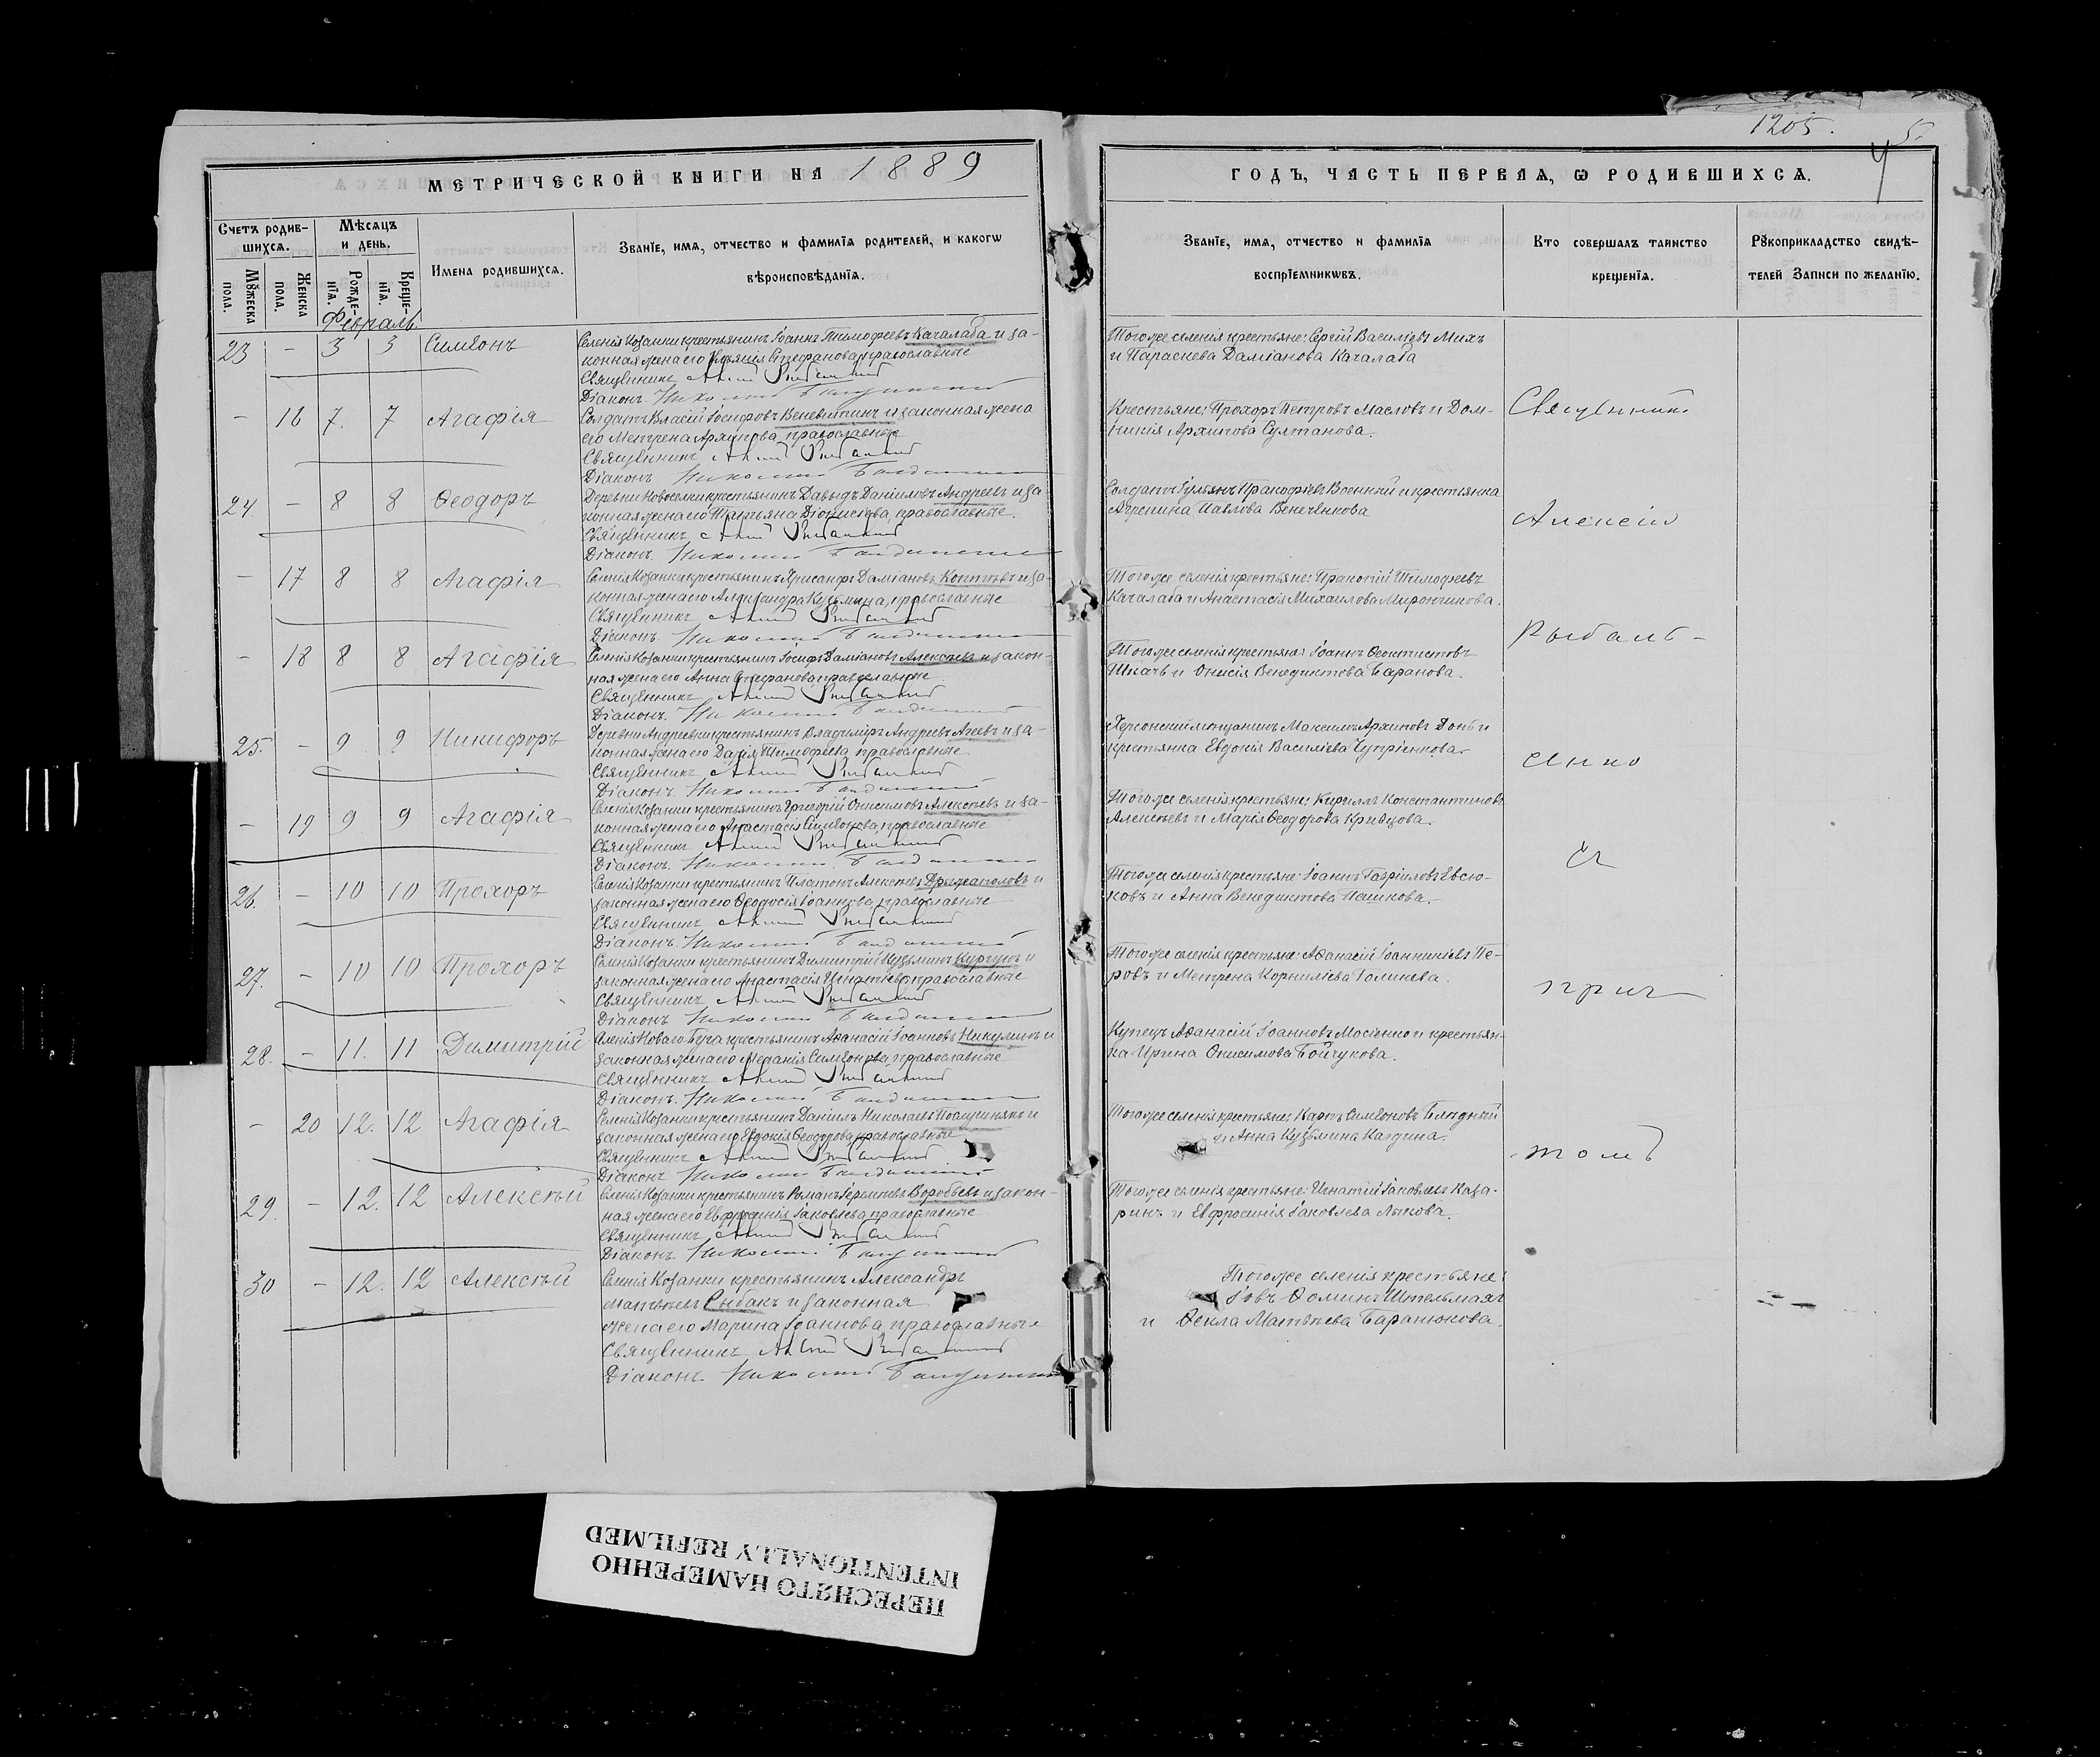 1205.
5.
МЕТРИЧЕСКОЙ КНИГИ НА 1889
ГОДЪ, ЧАСТЬ ПЕРВАЯ, Ѡ РОДИВШИХСѦ.
Счетъ родив-
шихсѧ.
Мѣсѧцъ
и день.
Мꙋжеска
пола.
Женска
пола.
Рожде-
нїѧ.
Креще-
нїѧ.
Имена родившихсѧ.
Званїе, имѧ, отчество и фамилїѧ родителей, и какогѡ
вѣроисповѣданїѧ.
Званїе, имѧ, отчество и фамилїѧ
воспрїемникѡвъ.
Кто совершалъ таинство
крещенїѧ.
Рꙋкоприкладство свидѣ-
телей записи по желанїю.
Февраль
23 – 3 3 Симеонъ
Селенія Козанки крестьянинъ Іоаннъ Тимофеевъ Качалаба и за-
конная жена его Стефанова, православные
Священникъ
Діаконъ Николай
Тогоже селенія крестьяне: Сергій Василіевъ Михъ
и Параскева Даміанова Качалаба
– 16 7. 7 Агафія
Солдатъ Власій Іосифовъ Веневитинъ и законная жена
его Метрена Архипова, православные
Священникъ
Діаконъ Николай
Крестьяне: Прохоръ Петровъ Масловъ и Дом-
никія Архипова Султанова.
24 – 8 8 Ѳеодоръ
Деревни Новоселки крестьянинъ Давыдъ Даніиловъ Андреевъ и за
конная жена его Татьяна Діонисіева, православные.
Священникъ
Діаконъ. Николай
Солдатъ Прокофіевъ Военный и крестьянка
Агрепина Павлова Венечёнкова
– 17 8 8 Агафія
Селенія Козанки крестьянинъ Хрисанфъ Даміановъ и за-
конная жена его Александра Кузьмина, православные
Священникъ
Діаконъ. Николай
Тогоже селенія крестьяне: Прокопій Тимофеевъ
Качалаба и Анастасія Михаилова Мирончикова.
– 18 8 8 Агафія
Селенія Козанки крестьянинъ Іосифъ Даміановъ Алексѣевъ и закон-
ная жена его Анна Стефанова православные
Священникъ
Діаконъ. Николай
Тогоже селенія крестьяне: Іоаннъ Ѳеоктистовъ
Шкачъ и Онисія Венедиктова Баранова.
25. – 9 9 Никифоръ
Деревни Андреевки крестьянинъ Владиміръ Андреевъ Агеевъ и за-
конная жена его Дарія Тимофеева, православные
Священникъ
Діаконъ. Николай
Херсонскій мѣщанинъ Максимъ Архиповъ Донь и
крестьянка Евдокія Василіева Чупріенкова.
– 19 9 9 Агафія
Селенія Козанки крестьянинъ Григорій Онисимовъ Алексѣевъ и за-
конная жена его Анастасія Симеонова, православные
Священникъ
Діаконъ. Николай
Тогоже селенія крестьяне: Кириллъ Константиновъ
Алексѣевъ и Марія Ѳеодорова Кривцова.
26. – 10 10 Прохоръ
Селенія Козанки крестьянинъ Платонъ Алексѣевъ и
законная жена его Ѳеодосія Іоаннова, православные
Священникъ
Діаконъ. Николай
Тогоже селенія крестьяне: Іоаннъ Гавріиловъ Евсю-
ковъ и Анна Венедиктова Пашкова.
27. – 10 10 Прохоръ
Селенія Козанки крестьянинъ Димитрій Кузьминъ Кургузъ и
законная жена его Анастасія Игнатіева, православные
Священникъ
Діаконъ Николай
Тогоже селенія крестьяне: Аѳанасій Іоанникіевъ Пе-
ровъ и Метрена Корнилієва Голинева.
28. – 11. 11 Димитрій
Селенія Новаго Буга крестьянинъ Аѳанасій Іоанновъ Никулинъ и
законная жена его Меланія Симеонова, православные
Священникъ
Діаконъ. Николай
Купецъ Аѳанасій Іоанновъ Мосіенко и крестьян-
ка Ирина Онисимова Бойчукова.
– 20 12. 12 Агафія
Селенія Козанки крестьянинъ Даніилъ Николаевъ и
законная жена его Евдокія Ѳеодорова, православные
Священникъ
Діаконъ Николай
Тогоже селенія крестьяне: Карпъ Симеоновъ Блѣдный
и Анна Кузьмина Кагдина.
29. – 12. 12 Алексѣй
Селенія Козанки крестьянинъ Романъ Воробьевъ и закон-
ная жена его Евфросинія Іаковлева, православные
Священникъ
Діаконъ. Николай
Тогоже селенія крестьяне: Игнатій Іаковлевъ Каза-
ринъ и Евфросинія Іаковлева Лыкова.
30 – 12. 12 Алексѣй
Селенія Козанки крестьянинъ Александръ
Матвѣевъ Рыбакъ и законная
жена его Марина Іоаннова православные
Священникъ
Діаконъ. Николай
Тогоже селенія крестьяне:
Іовъ Ѳоминъ Штельмахъ
и Ѳекла Матвѣева Баранюкова.
Священникъ
Алексій
Рыбаль-
скій
съ
прич-
томъ
ПЕРЕСНЯТО НАМЕРЕННО
INTENTIONALLY REFILMED